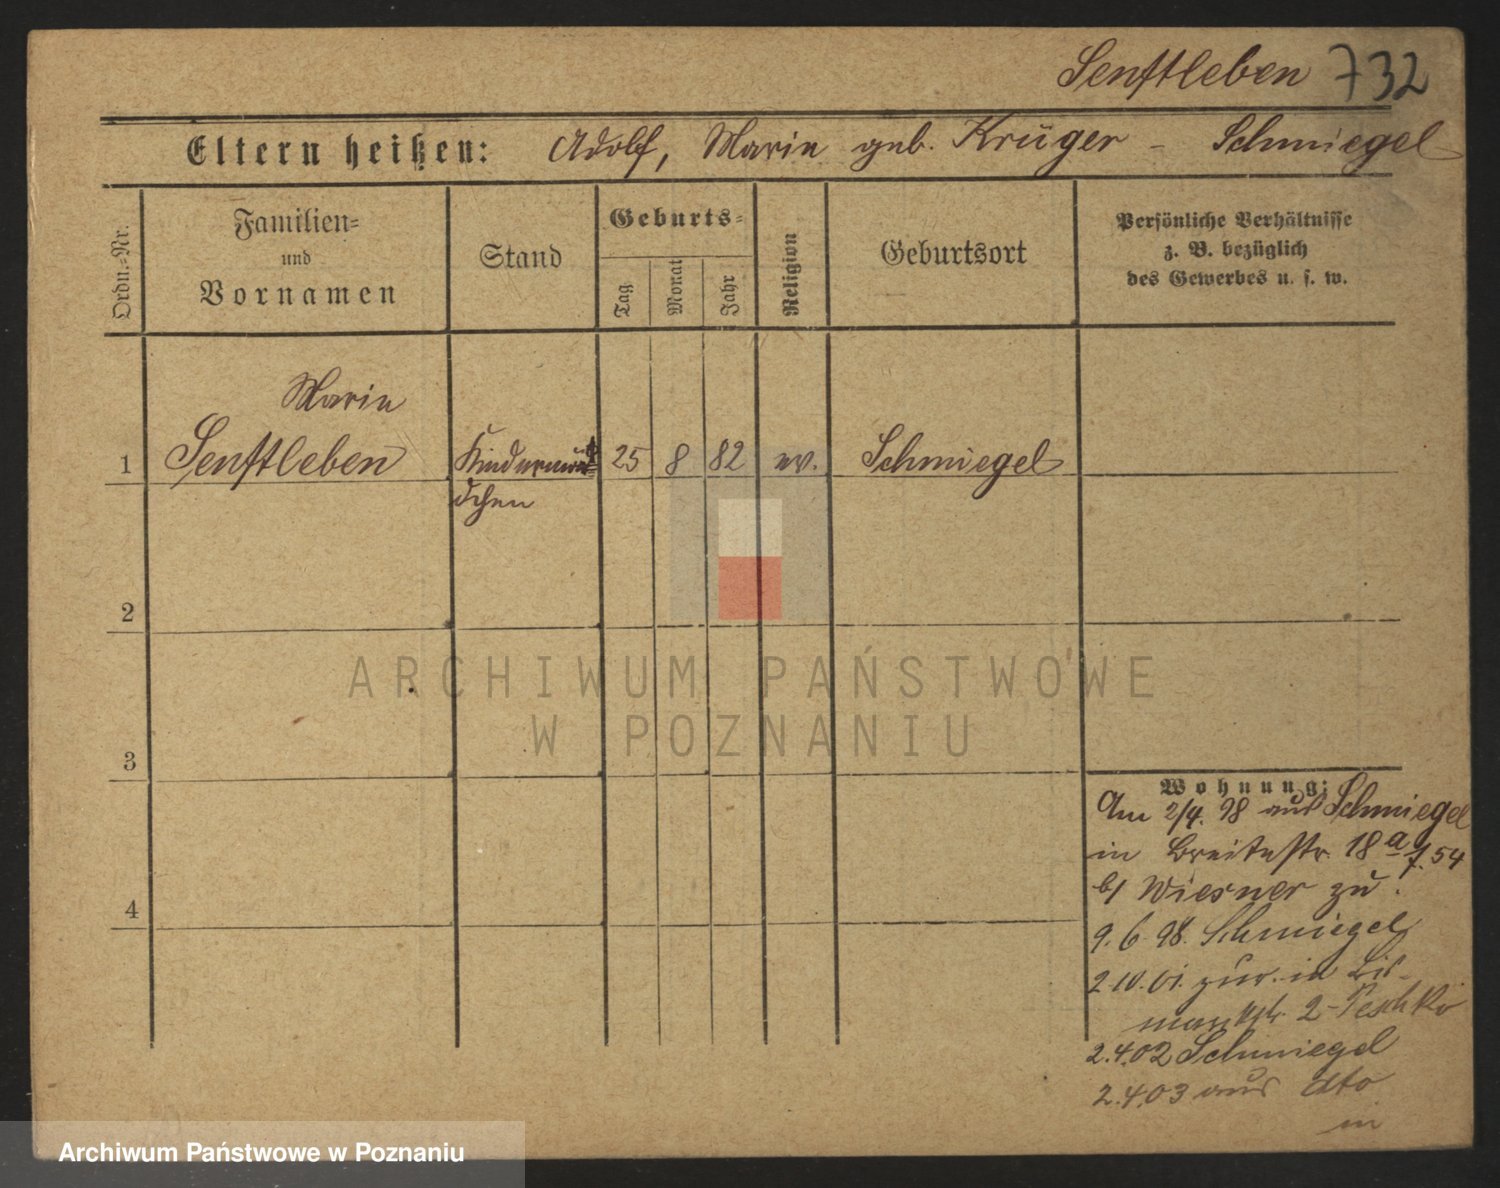 Senftleben 732
Eltern heißen: Adolf, Marie geb. Krüger - Schmiegel
Ordn.-Nr.
Familien-
und
Vornamen
Stand
Geburts-
Tag
Monat
Jahr
Religion
Geburtsort
Persönliche Verhältnisse
z. B. bezüglich
des Gewerbes u. s. w.
Marie
1 Senftleben Kindermäd 25 8 82 ev. Schmiegel
dchen
2
3
4
Wohnung:
Am 2/4. 98 aus Schmiegel
in Breitestr. 18a 7.54
b/ Wiesner zu.
9. 6. 98. Schmiegel
2.10.01. zur. in Bis-
marckstr. 2 - Peschko
2.4.02 Schmiegel
2.4.03 aus dto
in
ARCHIWUM PAŃSTWOWE
W POZNANIU
Archiwum Państwowe w Poznaniu